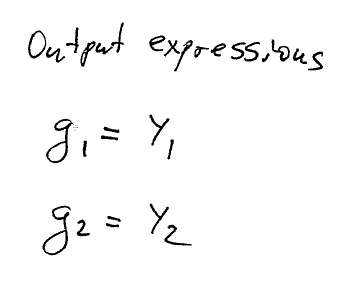 Output expressions
g₁ = Y₁
g₂ = Y₂